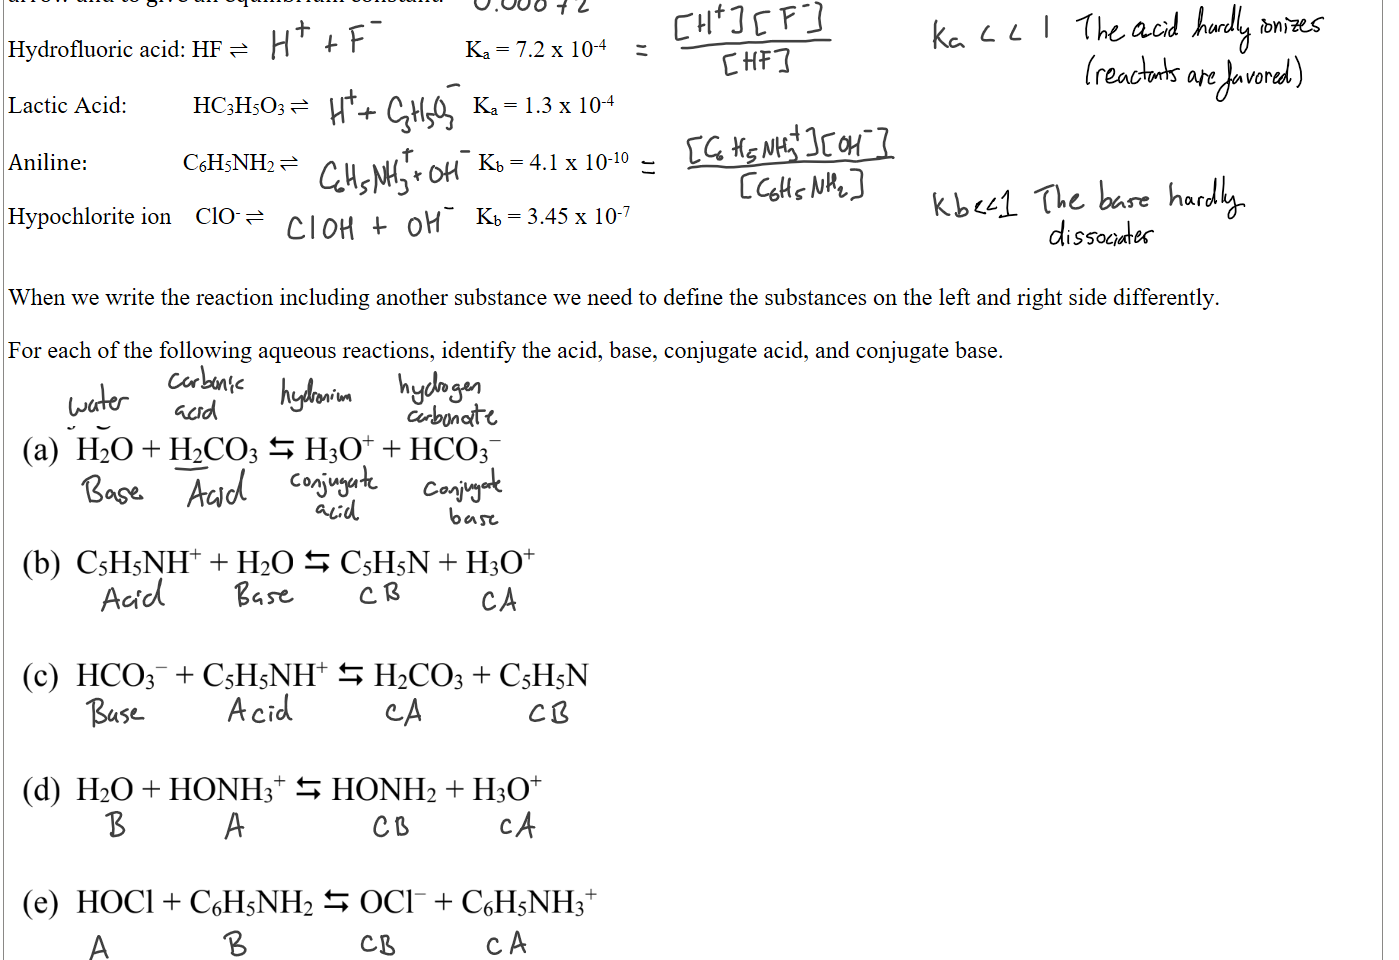 0.00072
Hydrofluoric acid: HF ⇌ H⁺ + F⁻ Kₐ = 7.2 x 10⁻⁴ = [H⁺][F⁻] / [HF] Ka << 1 The acid hardly ionizes
(reactants are favored)
Lactic Acid: HC₃H₅O₃ ⇌ H⁺ + C₃H₅O₃⁻ Kₐ = 1.3 x 10⁻⁴
Aniline: C₆H₅NH₂ ⇌ C₆H₅NH₃⁺ + OH⁻ K_b = 4.1 x 10⁻¹⁰ = [C₆H₅NH₃⁺][OH⁻] / [C₆H₅NH₂]
Kb<<1 The base hardly
dissociates
Hypochlorite ion ClO⁻ ⇌ ClOH + OH⁻ K_b = 3.45 x 10⁻⁷
When we write the reaction including another substance we need to define the substances on the left and right side differently.
For each of the following aqueous reactions, identify the acid, base, conjugate acid, and conjugate base.
water carbonic acid hydronium hydrogen carbonate
(a) H₂O + H₂CO₃ ⇆ H₃O⁺ + HCO₃⁻
Base Acid conjugate acid conjugate base
(b) C₅H₅NH⁺ + H₂O ⇆ C₅H₅N + H₃O⁺
Acid Base CB CA
(c) HCO₃⁻ + C₅H₅NH⁺ ⇆ H₂CO₃ + C₅H₅N
Base Acid CA CB
(d) H₂O + HONH₃⁺ ⇆ HONH₂ + H₃O⁺
B A CB CA
(e) HOCl + C₆H₅NH₂ ⇆ OCl⁻ + C₆H₅NH₃⁺
A B CB CA